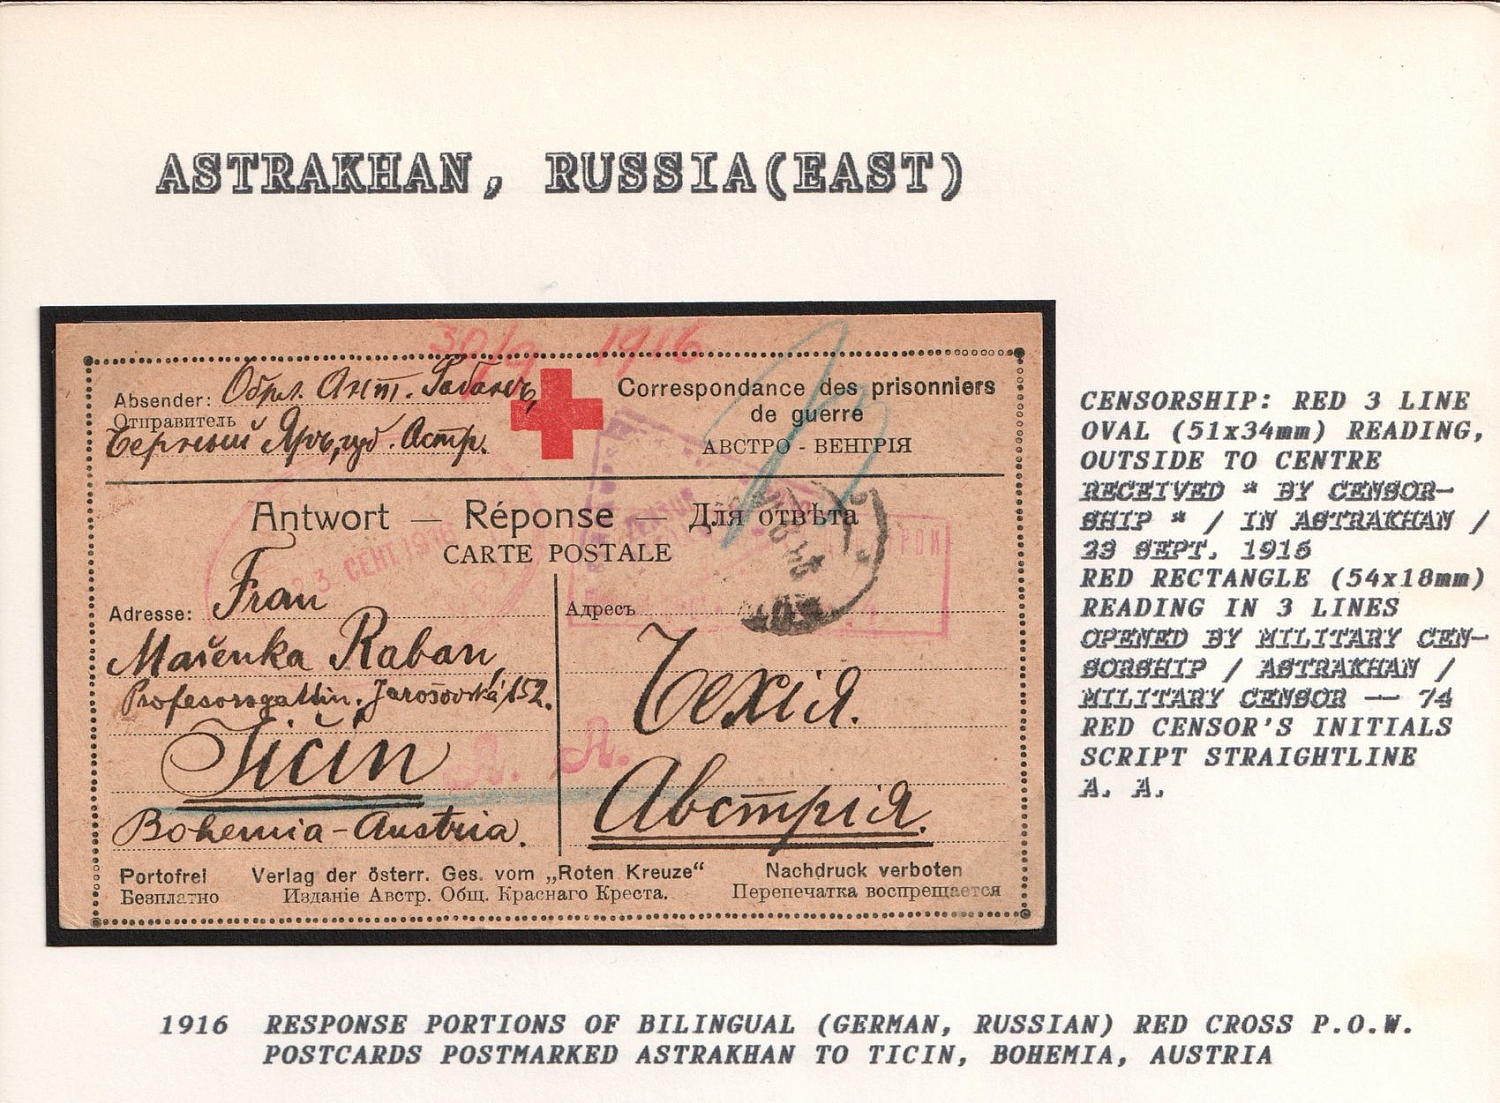 ASTRAKHAN, RUSSIA(EAST)
30/9 1916
Absender:
Отправитель
Черный Яръ, губ. Астр.
Correspondance des prisonniers
de guerre
АВСТРО - ВЕНГРІЯ
Antwort — Réponse — Для отвѣта
CARTE POSTALE
23. СЕНТ. 1916
Adresse: Frau
Mařenka Raban,
Profesorsgattin. Jarošovská 152.
Jičin
Bohemia-Austria.
Адресъ
Чехія.
Австрія.
А. А.
Portofrei Verlag der österr. Ges. vom „Roten Kreuze“ Nachdruck verboten
Безплатно Изданіе Австр. Общ. Краснаго Креста. Перепечатка воспрещается
CENSORSHIP: RED 3 LINE
OVAL (51x34mm) READING,
OUTSIDE TO CENTRE
RECEIVED * BY CENSOR-
SHIP * / IN ASTRAKHAN /
23 SEPT. 1916
RED RECTANGLE (54x18mm)
READING IN 3 LINES
OPENED BY MILITARY CEN-
SORSHIP / ASTRAKHAN /
MILITARY CENSOR -- 74
RED CENSOR'S INITIALS
SCRIPT STRAIGHTLINE
A. A.
1916 RESPONSE PORTIONS OF BILINGUAL (GERMAN, RUSSIAN) RED CROSS P.O.W.
POSTCARDS POSTMARKED ASTRAKHAN TO TICIN, BOHEMIA, AUSTRIA